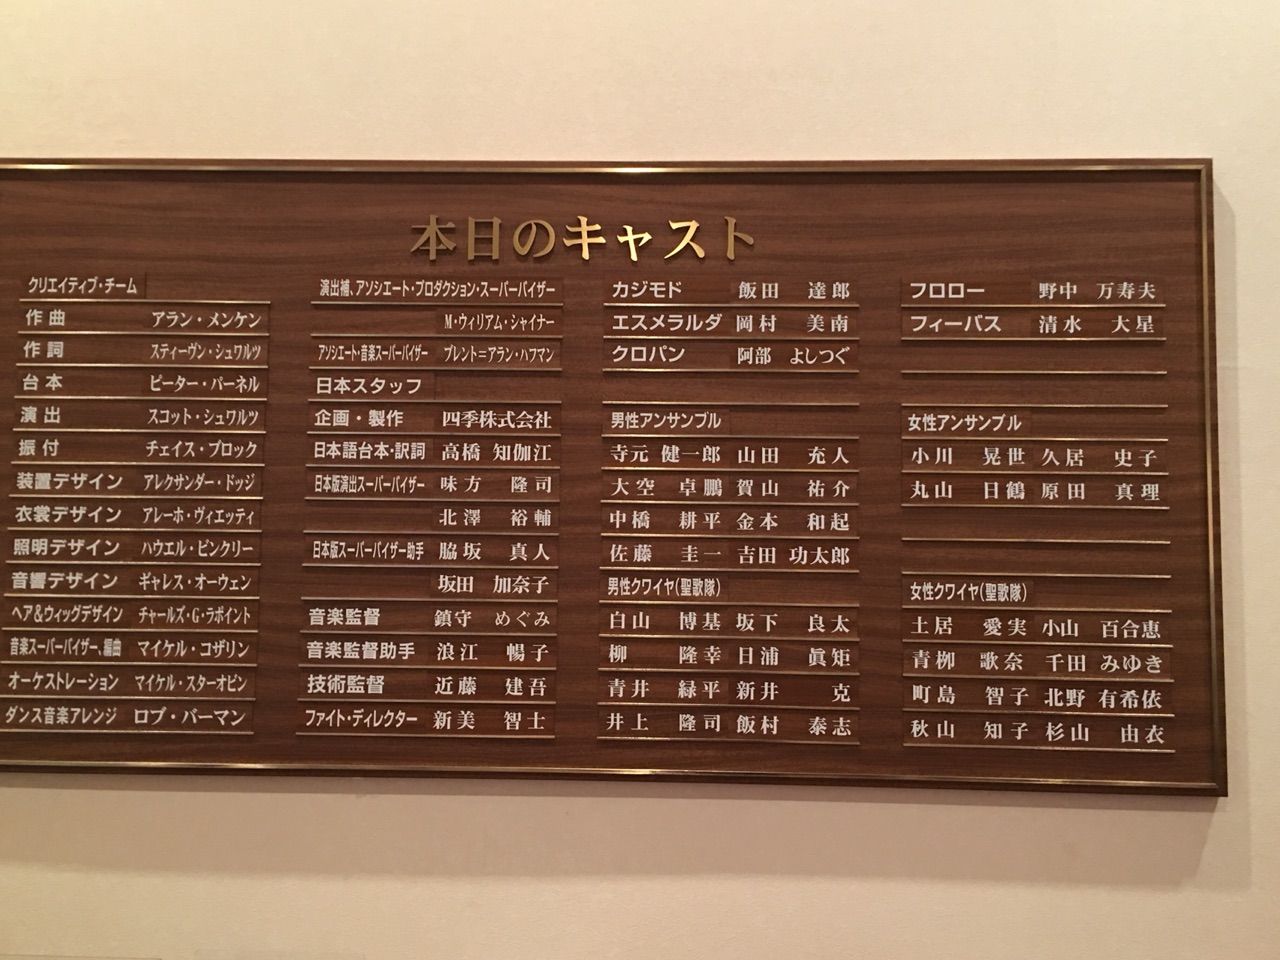 本日のキャスト
クリエイティブ・チーム
作曲 アラン・メンケン
作詞 スティーヴン・シュワルツ
台本 ピーター・パーネル
演出 スコット・シュワルツ
振付 チェイス・ブロック
装置デザイン アレクサンダー・ドッジ
衣裳デザイン アレーホ・ヴィエッティ
照明デザイン ハウエル・ビンクリー
音響デザイン ギャレス・オーウェン
ヘア&ウィッグデザイン チャールズ・G・ラポイント
音楽スーパーバイザー、編曲 マイケル・コザリン
オーケストレーション マイケル・スターオビン
ダンス音楽アレンジ ロブ・バーマン
演出補、アソシエート・プロダクション・スーパーバイザー
M・ウィリアム・シャイナー
アソシエート・音楽スーパーバイザー ブレント=アラン・ハフマン
日本スタッフ
企画・製作 四季株式会社
日本語台本・訳詞 高橋 知伽江
日本版演出スーパーバイザー 味方 隆司
北澤 裕輔
日本版スーパーバイザー助手 脇坂 真人
坂田 加奈子
音楽監督 鎮守 めぐみ
音楽監督助手 浪江 暢子
技術監督 近藤 建吾
ファイト・ディレクター 新美 智士
カジモド 飯田 達郎
エスメラルダ 岡村 美南
クロパン 阿部 よしつぐ
男性アンサンブル
寺元 健一郎 山田 充人
大空 卓鵬 賀山 祐介
中橋 耕平 金本 和起
佐藤 圭一 吉田 功太郎
男性クワイヤ(聖歌隊)
白山 博基 坂下 良太
柳 隆幸 日浦 眞矩
青井 緑平 新井 克
井上 隆司 飯村 泰志
フロロー 野中 万寿夫
フィーバス 清水 大星
女性アンサンブル
小川 晃世 久居 史子
丸山 日鶴 原田 真理
女性クワイヤ(聖歌隊)
土居 愛実 小山 百合恵
青栁 歌奈 千田 みゆき
町島 智子 北野 有希依
秋山 知子 杉山 由衣